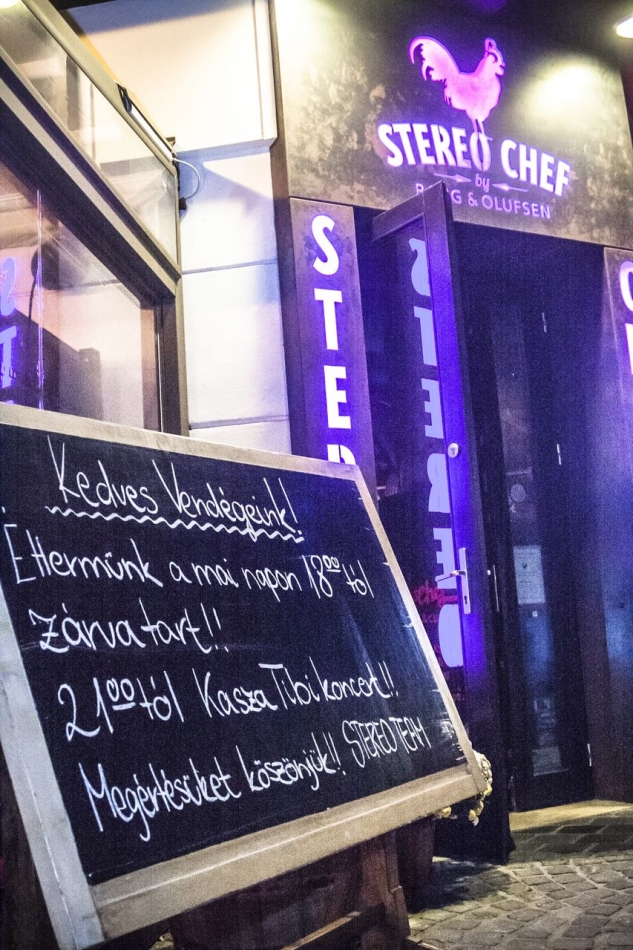 STEREO CHEF
by
BANG & OLUFSEN
STER
STEREO
Kedves Vendégeink!
Éttermünk a mai napon 18⁰⁰-tól
Zárva tart!!
21⁰⁰-tól Kasza Tibi koncert!!
Megértésüket köszönjük!! STEREO TEAM